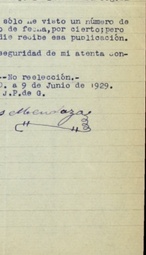 sólo he visto un número de
o de fecha, por cierto; pero
die recibe esa publicación.
seguridad de mi atenta con-
--No reelección.-
D. a 9 de Junio de 1929.
J.P. de G.
s Mendoza